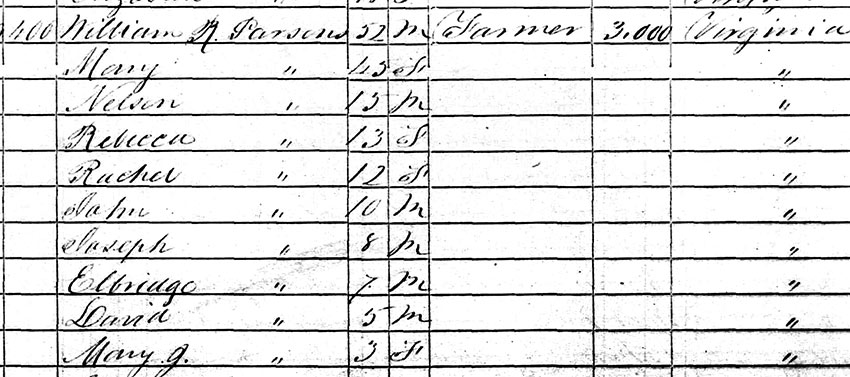 400 William R. Parsons 52 M Farmer 3,000 Virginia
Mary " 43 F "
Nelson " 15 M "
Rebecca " 13 F "
Rachel " 12 F "
John " 10 M "
Joseph " 8 M "
Elbridge " 7 M "
David " 5 M "
Mary J. " 3 F "